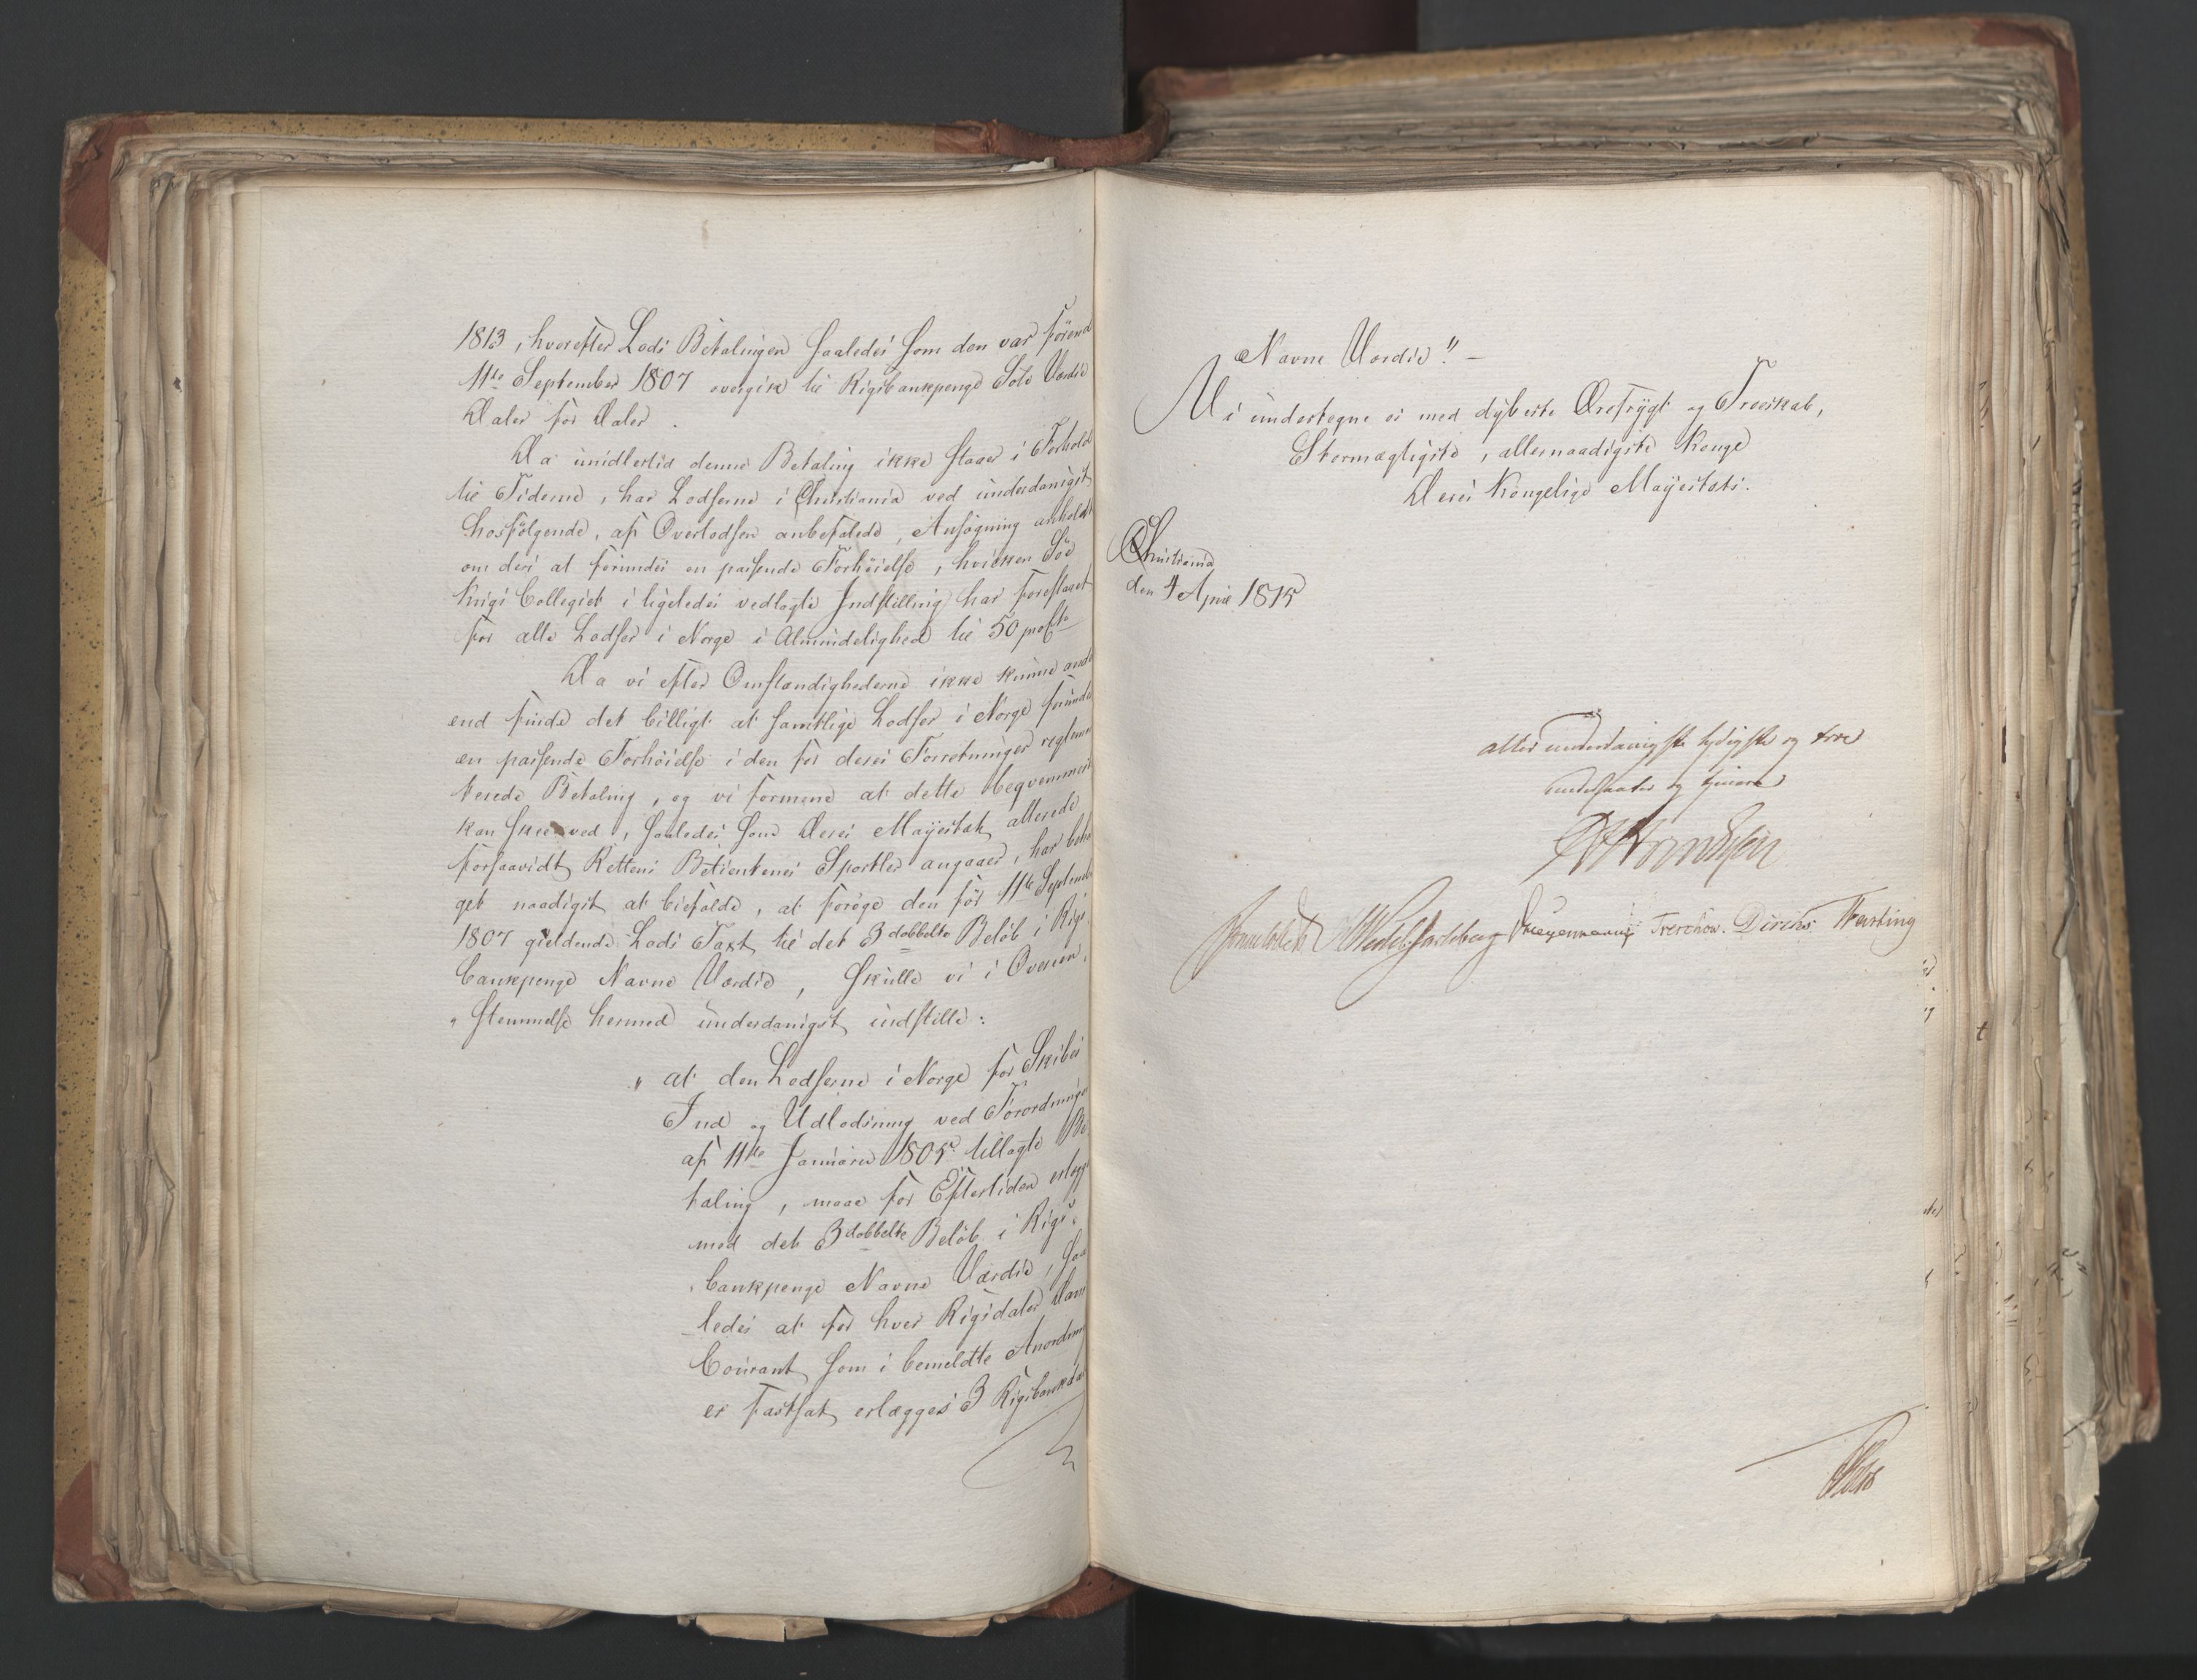 1813, hvorefter Lods Betalingen saaledes som den var förend
11te September 1807 overgik til Rigsbankpenge Sölv Værdie
Daler for Daler.
Da imidlertid denne Betaling ikke staaer i Forhold
til Tiderne, har Lodserne i Christiania ved underdanigst
hosfölgende, af Overlodsen anbefalede, Ansögning anholdt
om deri at forundes en passende Forhöielse, hvilken Söe
Krigs Collegiet i ligeledes vedlagte Indstilling har foreslaaet
for alle Lodser i Norge i Almindelighed til 50 procto
Da vi efter Omstændighederne ikke kunne andet
end finde det billigt at samtlige Lodser i Norge forundes
en passende Forhöielse i den for deres Forretninger reglemen
terede Betaling, og vi formene at dette beqvemmest
kan skee ved, saaledes som Deres Mayestæt allerede
forsaavidt Rettens Betientenes Sportler angaaer, har beha
get naadigst at bifalde, at foröge den för 11te September
1807 gieldende Lods Taxt til det 3dobbelte Belöb i Rigs
bankpenge Navne Værdie, skulle vi i Overeens
stemmelse hermed underdanigst indstille:
" at den Lodserne i Norge for Skibes
Ind og Udlodsning ved Forordningen
af 11te Januarii 1805 tillagte Be
taling, maae for Eftertiden erlægges
med det 3dobbelte Belöb i Rigs
bankpenge Navne Værdie, saa
ledes at for hver Rigsdaler Dansk
Courant som i bemeldte Anordning
er fastsat, erlægges 3 Rigsbankdaler
Navne Værdie" —
Vi undertegne os med dybeste Ærefrygt og Troeskab,
Stormægtigste, allernaadigste Konge
Deres Kongelige Mayestæts.
Christiania
den 4 April 1815
aller underdanigste lydigste og troe
undersaatter og tjenere
Sommerhielm Wedel Jarlsberg Krieger Treschow. Diriks Fasting